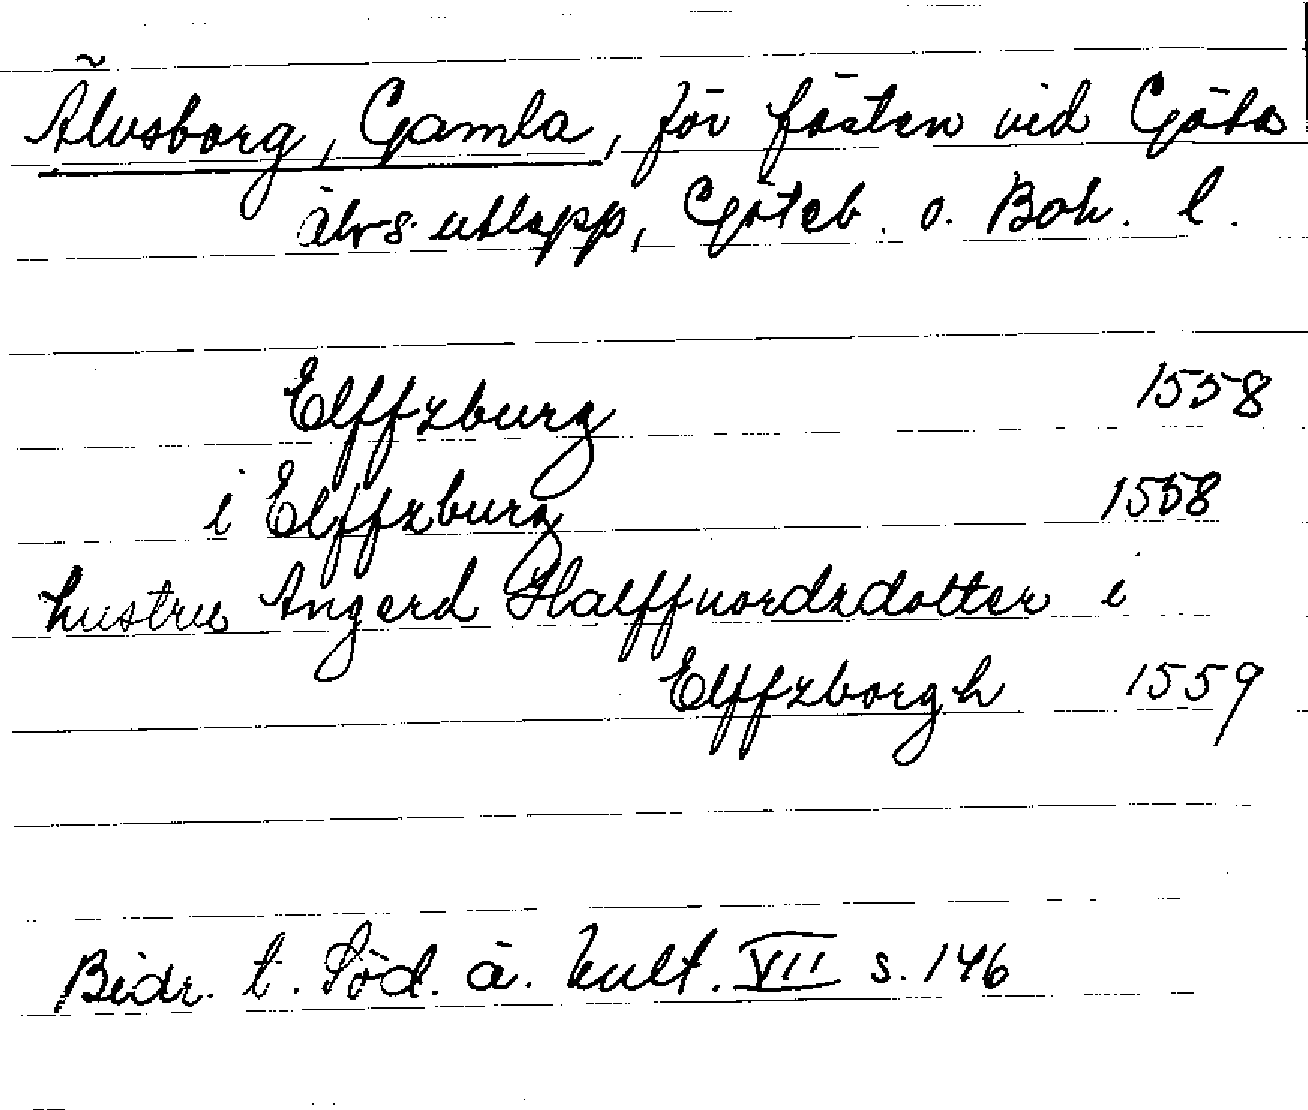 Älvsborg, Gamla, för fästen vid Göta
älvs utlopp, Göteb. o. Boh. l.
Elffzburg 1558
i Elffzburg 1558
hustru Angerd Halffuordzdotter i
Elffzborgh 1559
Bidr. t. Söd. ä. kult. VII s. 146